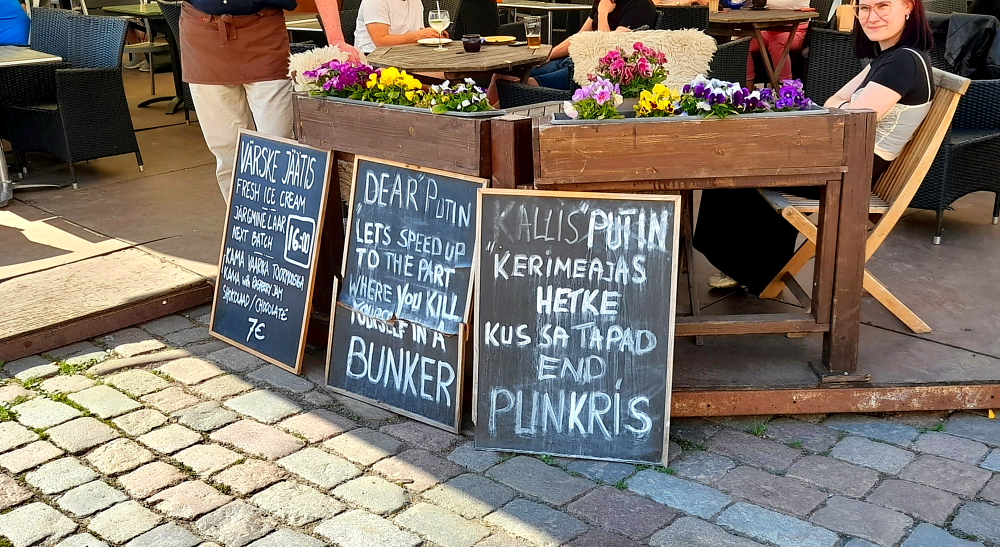 VÄRSKE JÄÄTIS
FRESH ICE CREAM
JÄRGMINE LAAR
NEXT BATCH
16:00
KAMA VAARIKA TOORMOOSIGA
KAMA with RASPBERRY JAM
SHOKOLAAD / CHOCOLATE
7€
"DEAR" PUTIN
LETS SPEED UP
TO THE PART
WHERE YOU KILL
YOURSELF IN A
BUNKER
"KALLIS" PUTIN
KERIME AJAS
HETKE
KUS SA TAPAD
END
PUNKRIS